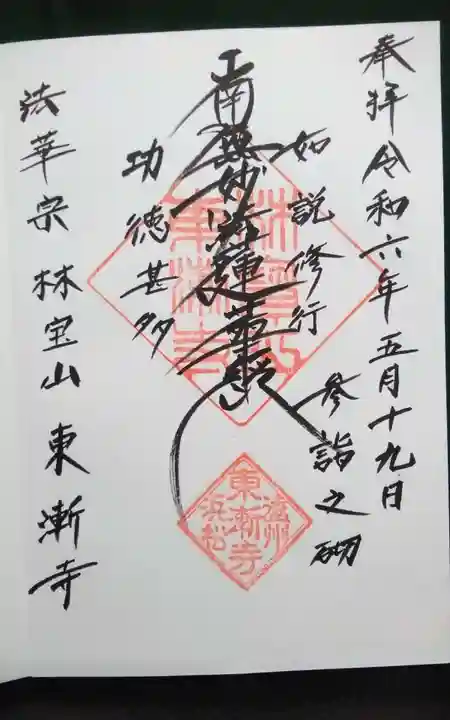 奉拝令和六年五月十九日
参詣之砌
如説修行
南無妙法蓮華経
功徳甚多
法華宗林宝山東漸寺
遠州
東漸寺
浜松